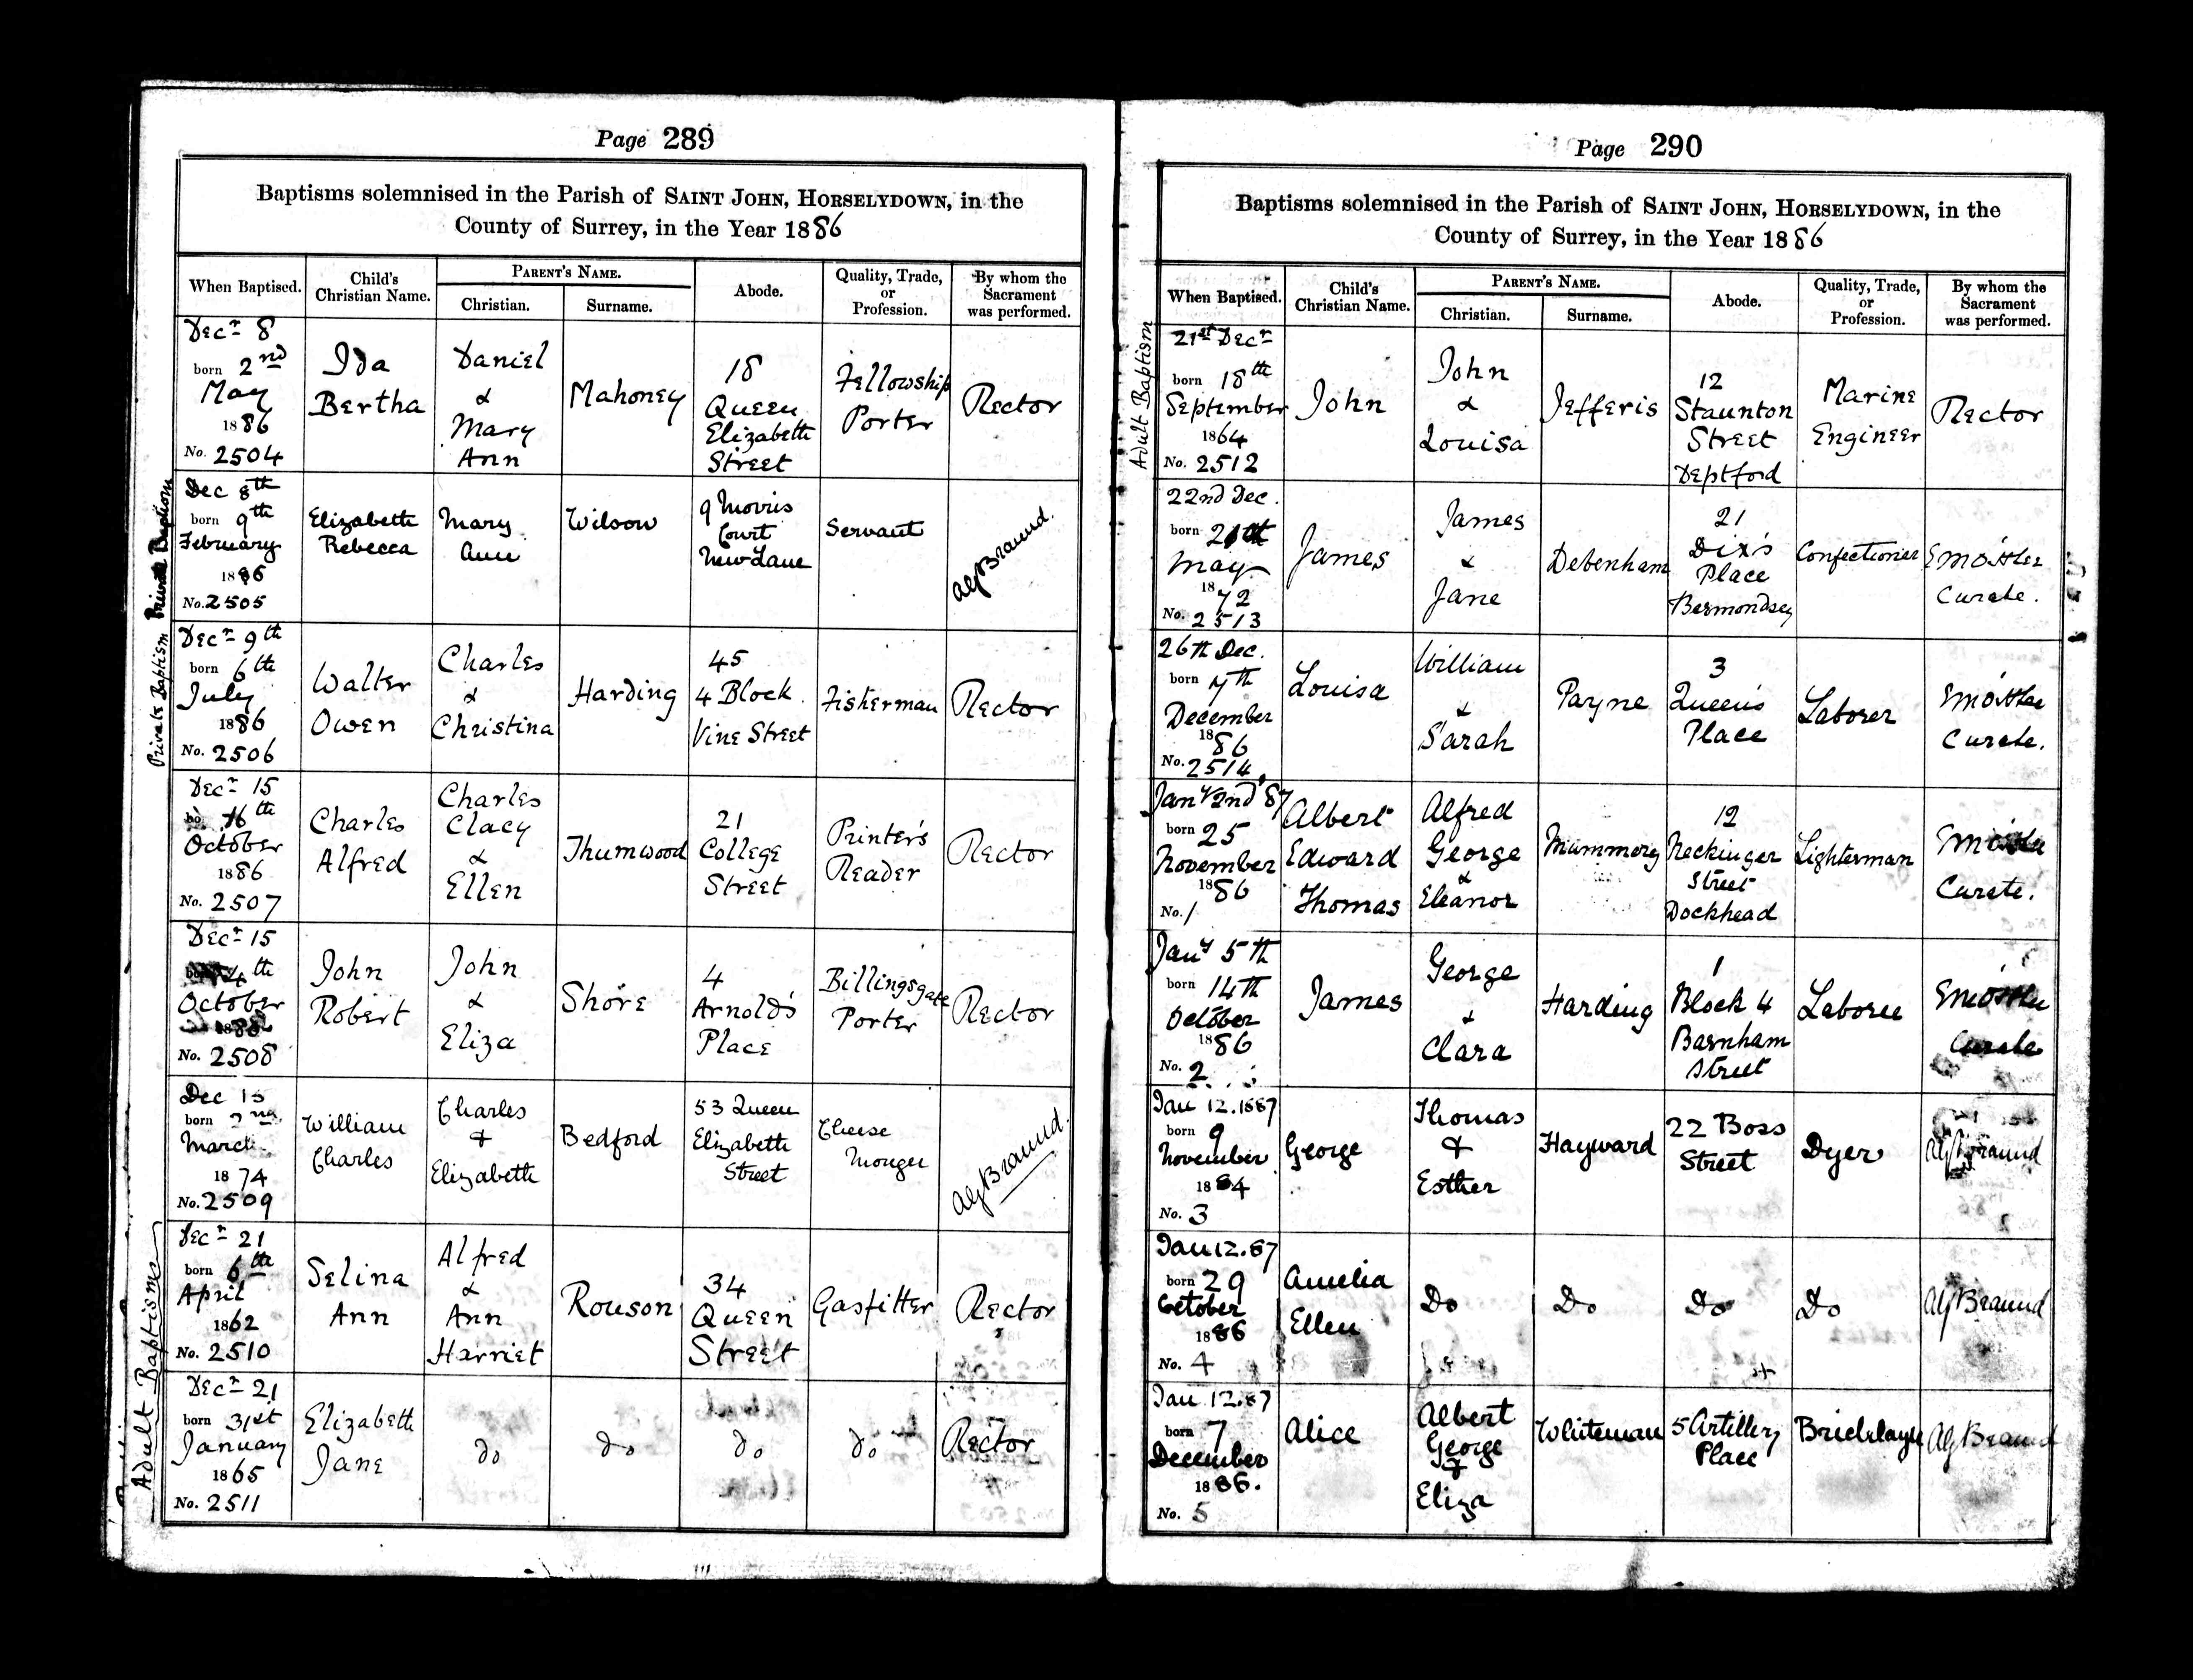 Page 289
Baptisms solemnised in the Parish of SAINT JOHN, HORSELYDOWN, in the
County of Surrey, in the Year 1886
When Baptised.
Child's
Christian Name.
PARENT'S NAME.
Christian.
Surname.
Abode.
Quality, Trade,
or
Profession.
By whom the
Sacrament
was performed.
Decr 8
born 2nd
May
1886
No. 2504
Ida
Bertha
Daniel
&
Mary
Ann
Mahoney
18
Queen
Elizabeth
Street
Fellowship
Porter
Rector
Private Baptism
Dec 8th
born 9th
February
1886
No. 2505
Elizabeth
Rebecca
Mary
Ann
Wilson
9 Morris
Court
New Lane
Servant
Alf Braund.
Private Baptism
Decr 9th
born 6th
July
1886
No. 2506
Walter
Owen
Charles
&
Christina
Harding
45
4 Block
Vine Street
Fisherman
Rector
Decr 15
16th
October
1886
No. 2507
Charles
Alfred
Charles
Clacy
&
Ellen
Thumwood
21
College
Street
Printer's
Reader
Rector
Decr 15
4th
October
No. 2508
John
Robert
John
&
Eliza
Shore
4
Arnold's
Place
Billingsgate
Porter
Rector
Dec 15
born 2nd
March
1874
No. 2509
William
Charles
Charles
&
Elizabeth
Bedford
53 Queen
Elizabeth
Street
Cheese
Monger
Alf Braund.
Adult Baptisms
Decr 21
born 6th
April
1862
No. 2510
Selina
Ann
Alfred
&
Ann
Harriet
Rouson
34
Queen
Street
Gasfitter
Rector
Decr 21
born 31st
January
1865
No. 2511
Elizabeth
Jane
do
do
do
do
Rector
Page 290
Baptisms solemnised in the Parish of SAINT JOHN, HORSELYDOWN, in the
County of Surrey, in the Year 1886
When Baptised.
Child's
Christian Name.
PARENT'S NAME.
Christian.
Surname.
Abode.
Quality, Trade,
or
Profession.
By whom the
Sacrament
was performed.
Adult Baptism
21st Decr
born 18th
September
1864
No. 2512
John
John
&
Louisa
Jefferis
12
Staunton
Street
Deptford
Marine
Engineer
Rector
22nd Dec.
born 21st
May
1872
No. 2513
James
James
&
Jane
Debenham
21
Dix's
Place
Bermondsey
Confectioner
Curate.
26th Dec.
born 7th
December
1886
No. 2514
Louisa
William
&
Sarah
Payne
3
Queen's
Place
Laborer
Curate.
Jany 2nd 87
born 25
November
1886
No. 1
Albert
Edward
Thomas
Alfred
George
&
Eleanor
Mummery
12
Neckinger
Street
Dockhead
Lighterman
Curate.
Jany 5th
born 14th
October
1886
No. 2
James
George
&
Clara
Harding
1
Block 4
Barnham
Street
Laborer
Curate
Jan 12.1887
born 9
November
1884
No. 3
George
Thomas
&
Esther
Hayward
22 Boss
Street
Dyer
Alf Braund
Jan 12.87
born 29
October
1886
No. 4
Amelia
Ellen
Do
Do
Do
Do
Alf Braund
Jan 12.87
born 7
December
1886.
No. 5
Alice
Albert
George
&
Eliza
Whiteman
5 Artillery
Place
Bricklayer
Alf Braund